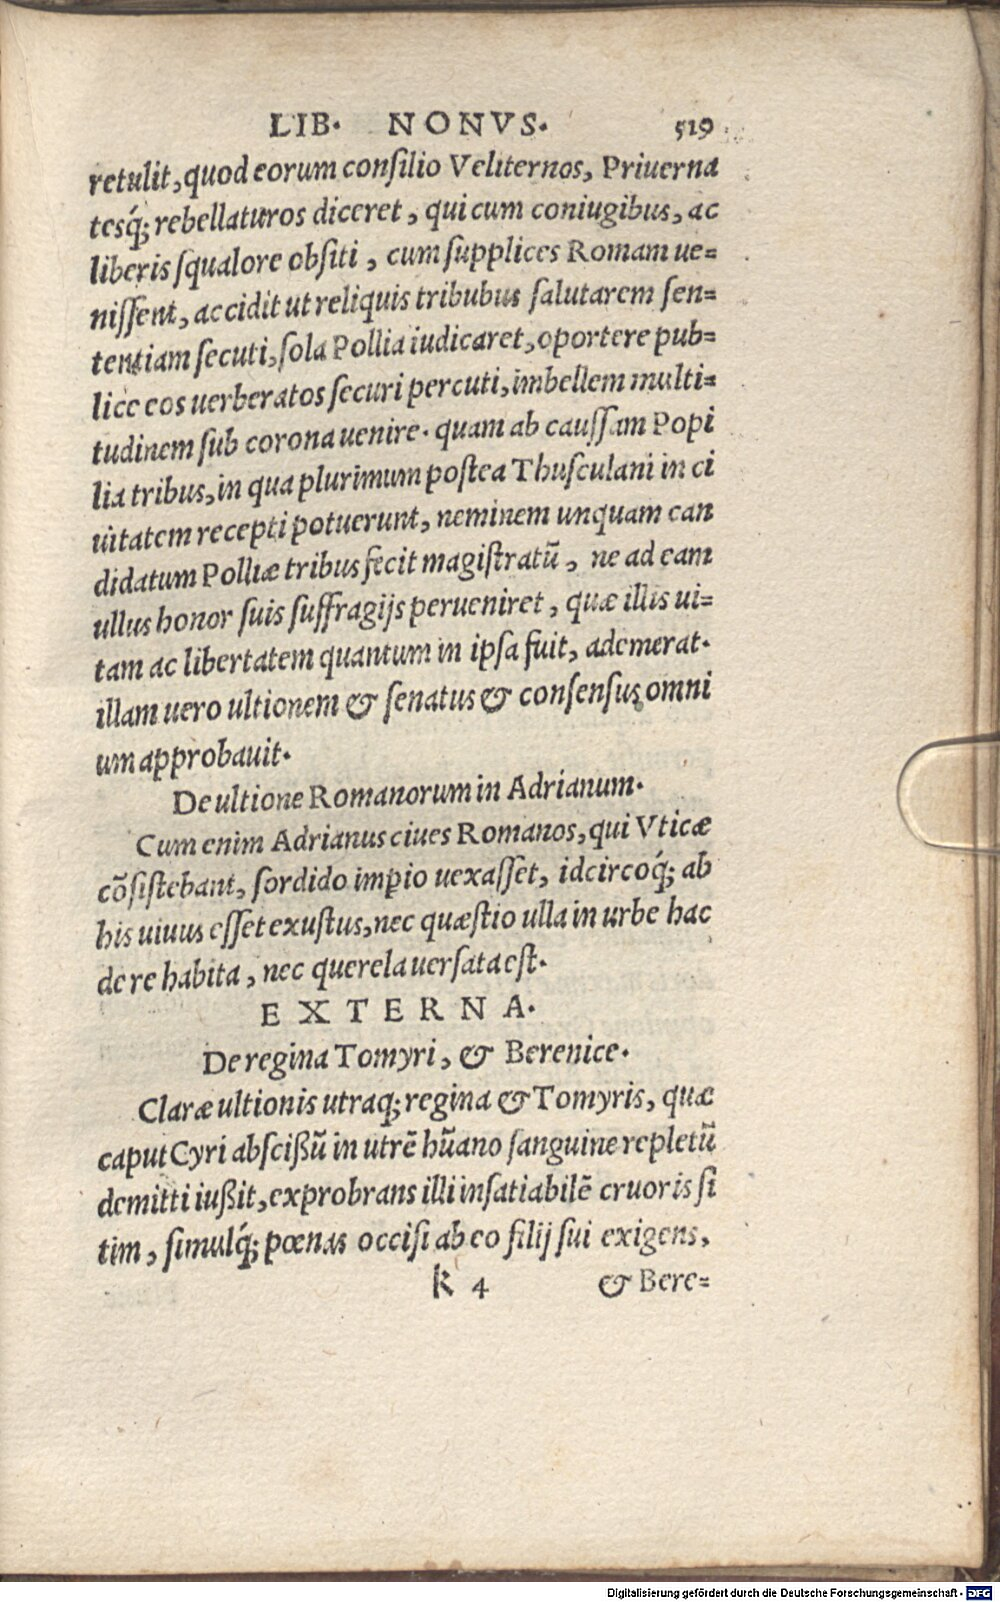 LIB. NONVS. 519
retulit, quod eorum consilio Veliternos, Priuerna
tesq́; rebellaturos diceret, qui cum coniugibus, ac
liberis squalore obsiti, cum supplices Romam ue=
nissent, accidit ut reliquis tribubus salutarem sen=
tentiam secuti, sola Pollia iudicaret, oportere pub=
lice eos uerberatos securi percuti, imbellem multi=
tudinem sub corona uenire. quam ab caussam Popi
lia tribus, in qua plurimum postea Thusculani in ci
uitatem recepti potuerunt, neminem unquam can
didatum Polliæ tribus fecit magistratū, ne ad eam
ullus honor suis suffragijs perueniret, quæ illis ui=
tam ac libertatem quantum in ipsa fuit, ademerat.
illam uero ultionem & senatus & consensus omni
um approbauit.
De ultione Romanorum in Adrianum.
Cum enim Adrianus ciues Romanos, qui Vticæ
cōsistebant, sordido imp̄io uexasset, idcircoq́; ab
his uiuus esset exustus, nec quæstio ulla in urbe hac
de re habita, nec querela uersata est.
EXTERNA.
De regina Tomyri, & Berenice.
Claræ ultionis utraq; regina & Tomyris, quæ
caput Cyri abscißū in utrē hūano sanguine repletū
demitti iußit, exprobrans illi insatiabilē cruoris si
tim, simulq́; pœnas occisi ab eo filij sui exigens,
k 4 & Bere=
Digitalisierung gefördert durch die Deutsche Forschungsgemeinschaft - DFG